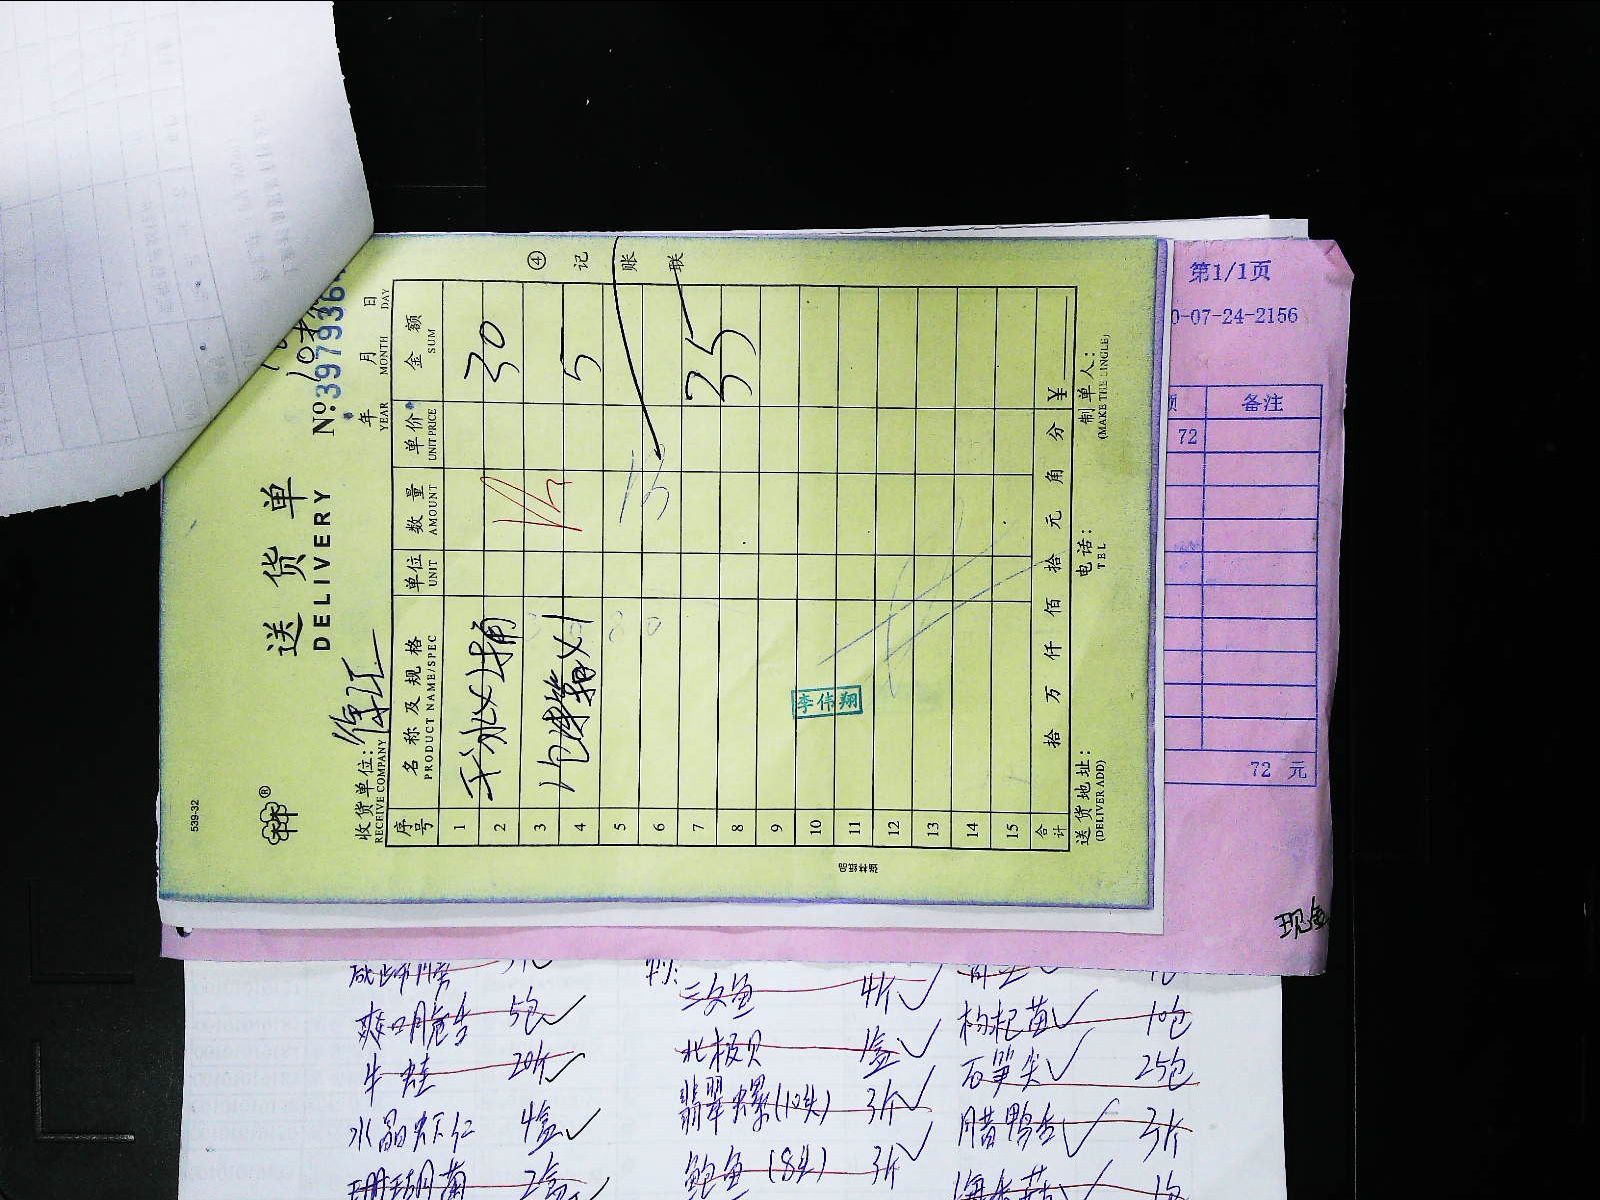 539-32
送货单
DELIVERY
No: 397936
收货单位:
RECEIVE COMPANY
年 月 日
YEAR MONTH DAY
序号 名称及规格 单位 数量 单价 金额
PRODUCT NAME/SPEC UNIT AMOUNT UNIT PRICE SUM
1
2 干冰×1桶 30
3
4 泡沫箱×1 5
5
6
7 35
8
9
10 李伟翔
11
12
13
14
15
合计 拾 万 仟 佰 拾 元 角 分 ¥
送货地址: 电话: 制单人:
(DELIVER ADD) TEL (MAKE THE LINGLE)
④ 记账联
第1/1页
0-07-24-2156
备注
72
72 元
现金
爽口鱼 5包
牛蛙 20斤
水晶虾仁 4盒
珊瑚菌 2盒
三文鱼 4斤
北极贝 1盒
翡翠螺(10头) 3斤
鲍鱼(8头) 3斤
枸杞苗 10包
石笋尖 25包
腊鸭 3斤